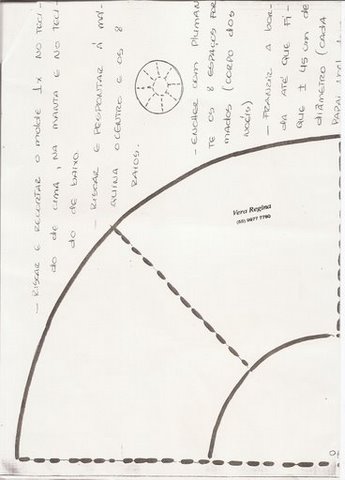 - RISCAR E RECORTAR O MOLDE 1X NO TECI-
DO DE CIMA, NA MANTA E NO TECI-
DO DE BAIXO.
- RISCAR E PESPONTAR À MÁ-
QUINA O CENTRO E OS 8
RAIOS.
- ENCHER COM PLUMAN
TE OS 8 ESPAÇOS FOR
MADOS (CORPO DOS
NÓIS)
- FRANZIR A BOR-
DA ATÉ QUE FI-
QUE ± 45 cm DE
DIÂMETRO (CADA
PAPAI
Vera Regina
(55) 9977 7790